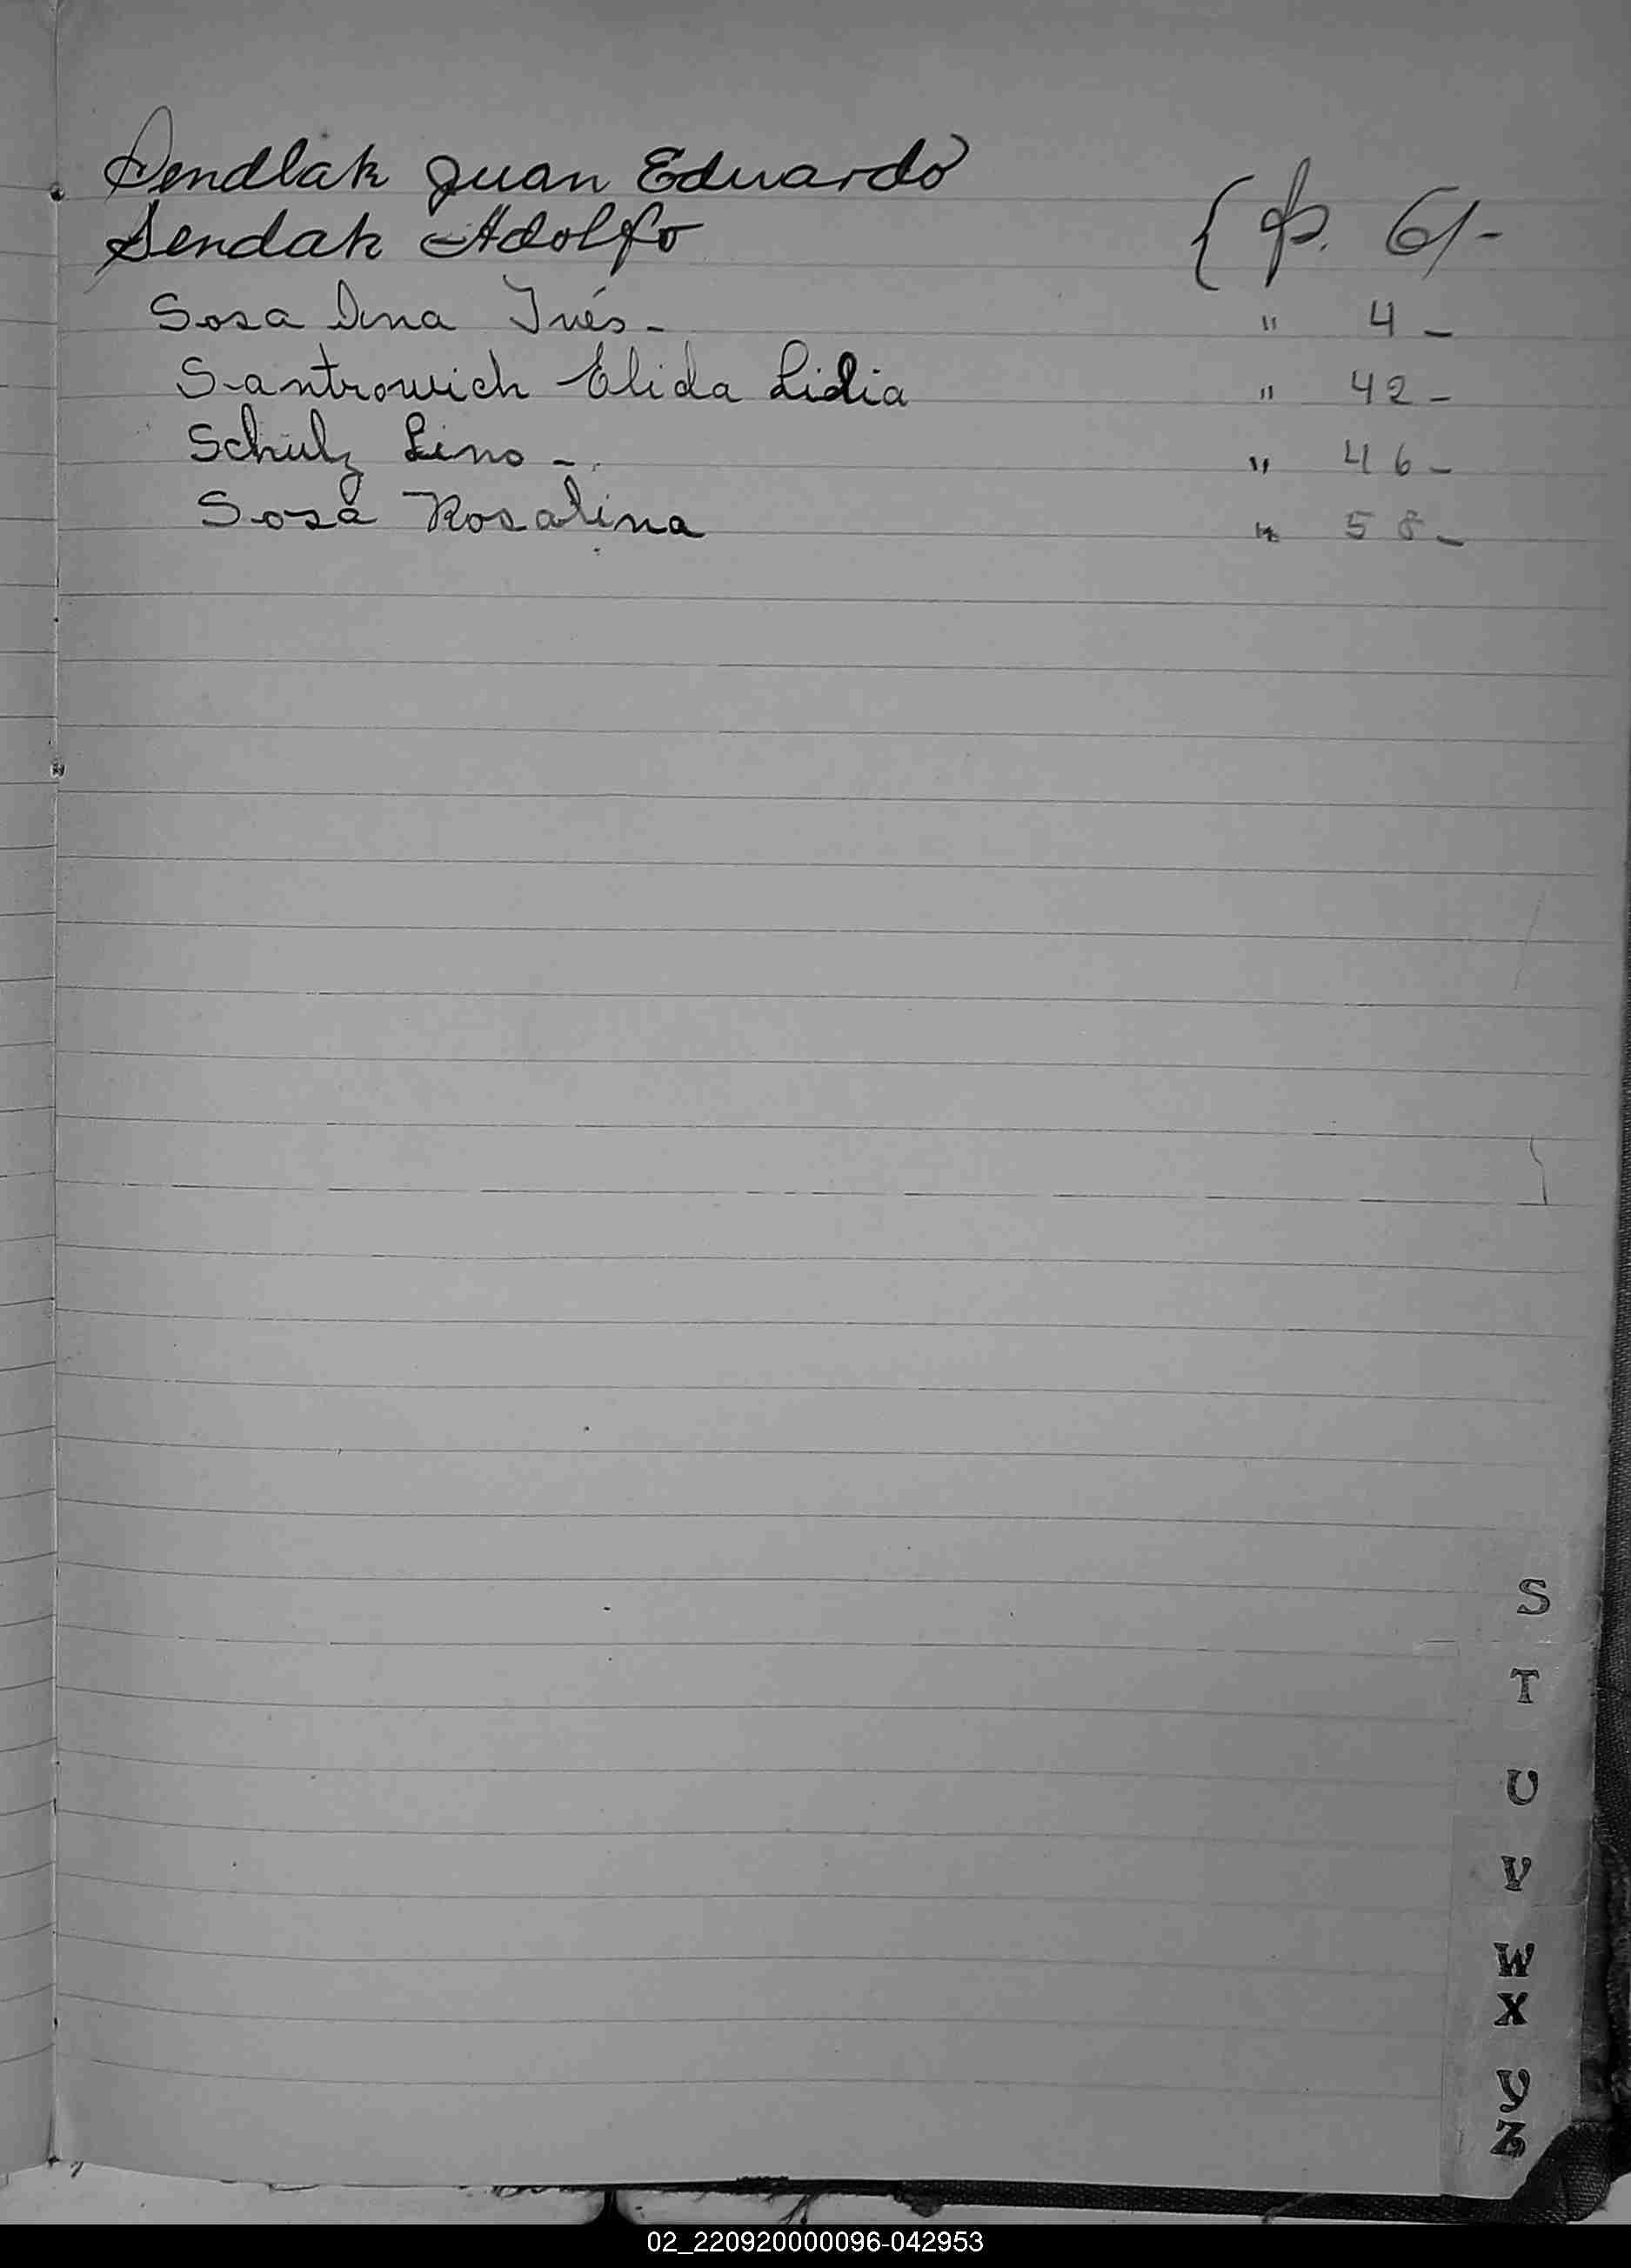 Sendlak Juan Eduardo
Sendak Adolfo { p. 61-
Sosa Ana Inés - " 4 -
Santrowich Elida Lidia " 42 -
Schulz Lino - " 46 -
Sosa Rosalina " 58 -
S
T
U
V
W
X
Y
Z
02_220920000096-042953